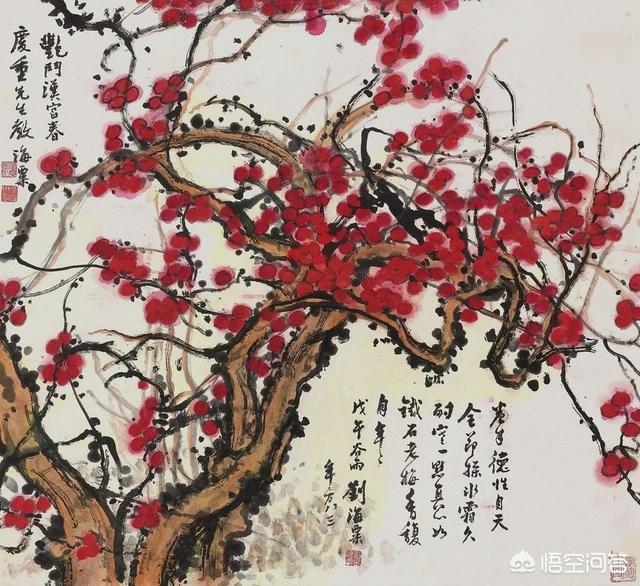 艷鬥漢宮春
慶重先生教
海粟
德性自天
全節操冰霜久
耐寒一點真心如
鐵石老梅香馥
自年々
戊午谷雨 劉海粟
年方八三
悟空问答